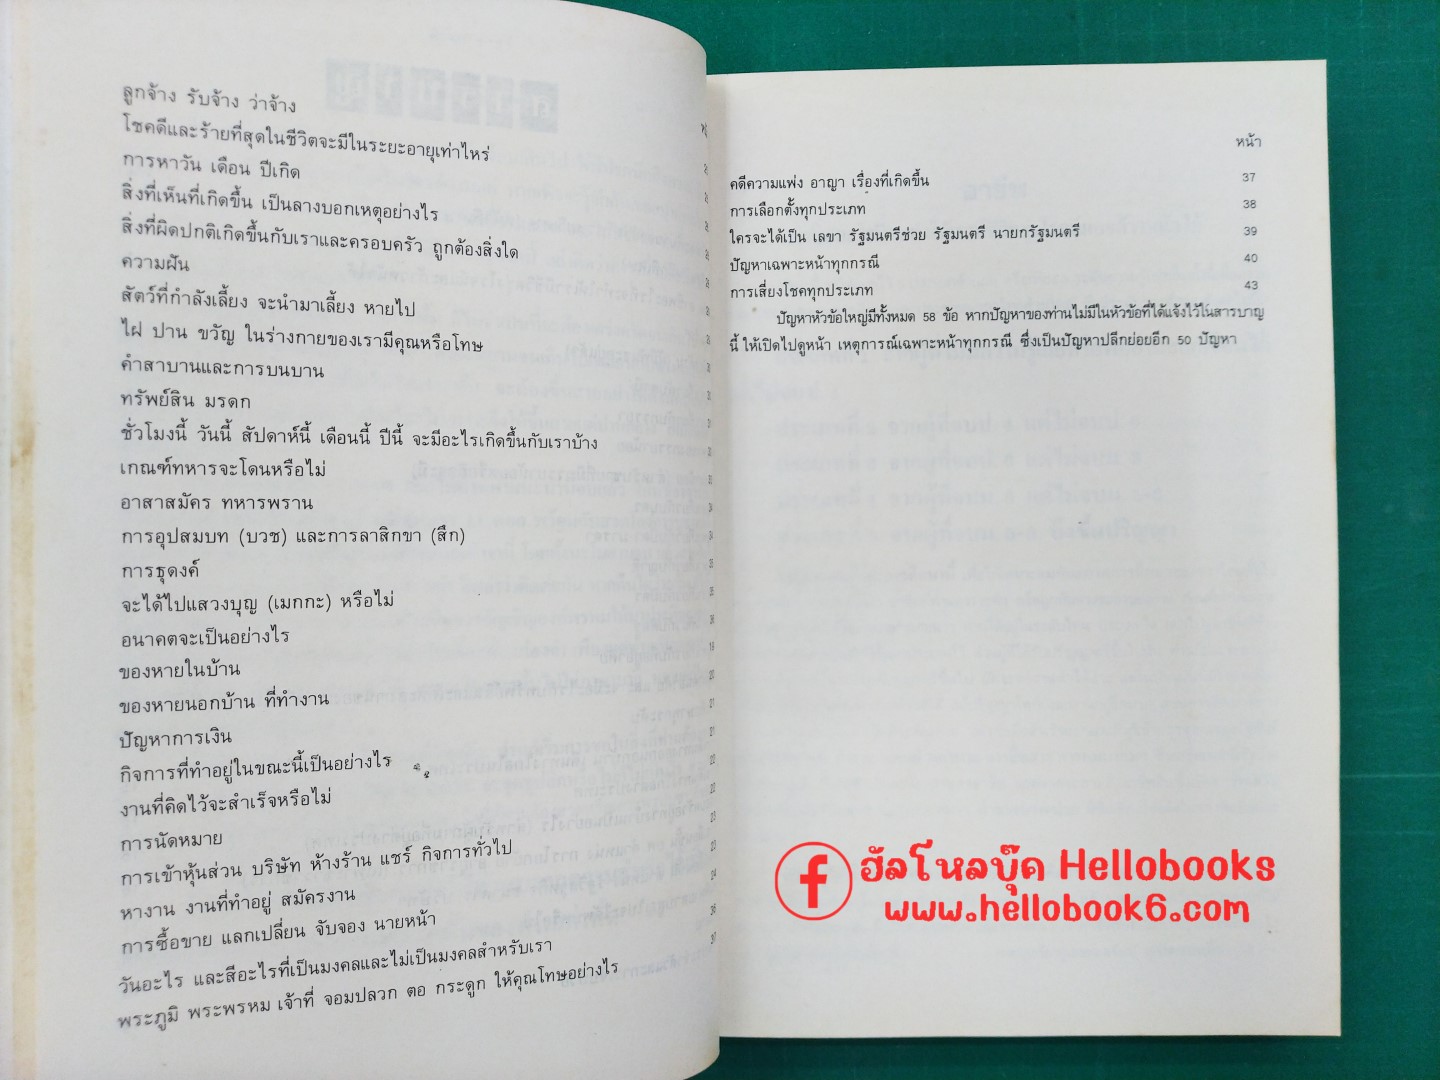 ลูกจ้าง รับจ้าง ว่าจ้าง
โชคดีและร้ายที่สุดในชีวิตจะมีในระยะอายุเท่าไหร่
การหาวัน เดือน ปีเกิด
สิ่งที่เห็นที่เกิดขึ้น เป็นลางบอกเหตุอย่างไร
สิ่งที่ผิดปกติเกิดขึ้นกับเราและครอบครัว ถูกต้องสิ่งใด
ความฝัน
สัตว์ที่กำลังเลี้ยง จะนำมาเลี้ยง หายไป
ไฝ ปาน ขวัญ ในร่างกายของเรามีคุณหรือโทษ
คำสาบานและการบนบาน
ทรัพย์สิน มรดก
ชั่วโมงนี้ วันนี้ สัปดาห์นี้ เดือนนี้ ปีนี้ จะมีอะไรเกิดขึ้นกับเราบ้าง
เกณฑ์ทหารจะโดนหรือไม่
อาสาสมัคร ทหารพราน
การอุปสมบท (บวช) และการลาสิกขา (สึก)
การธุดงค์
จะได้ไปแสวงบุญ (เมกกะ) หรือไม่
อนาคตจะเป็นอย่างไร
ของหายในบ้าน
ของหายนอกบ้าน ที่ทำงาน
ปัญหาการเงิน
กิจการที่ทำอยู่ในขณะนี้เป็นอย่างไร
งานที่คิดไว้จะสำเร็จหรือไม่
การนัดหมาย
การเข้าหุ้นส่วน บริษัท ห้างร้าน แชร์ กิจการทั่วไป
หางาน งานที่ทำอยู่ สมัครงาน
การซื้อขาย แลกเปลี่ยน จับจอง นายหน้า
วันอะไร และสีอะไรที่เป็นมงคลและไม่เป็นมงคลสำหรับเรา
พระภูมิ พระพรหม เจ้าที่ จอมปลวก ตอ กระดูก ให้คุณโทษอย่างไร
หน้า
คดีความแพ่ง อาญา เรื่องที่เกิดขึ้น 37
การเลือกตั้งทุกประเภท 38
ใครจะได้เป็น เลขา รัฐมนตรีช่วย รัฐมนตรี นายกรัฐมนตรี 39
ปัญหาเฉพาะหน้าทุกกรณี 40
การเสี่ยงโชคทุกประเภท 43
ปัญหาหัวข้อใหญ่มีทั้งหมด 58 ข้อ หากปัญหาของท่านไม่มีในหัวข้อที่ได้แจ้งไว้ในสารบาญ
นี้ ให้เปิดไปดูหน้า เหตุการณ์เฉพาะหน้าทุกกรณี ซึ่งเป็นปัญหาปลีกย่อยอีก 50 ปัญหา
f ฮัลโหลบุ๊ค Hellobooks
www.hellobook6.com